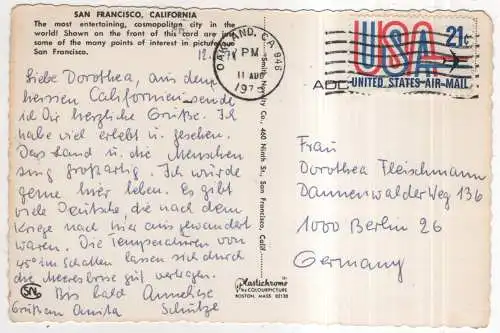 SAN FRANCISCO, CALIFORNIA
The most entertaining, cosmopolitan city in the
world! Shown on the front of this card are just
some of the many points of interest in picturesque
San Francisco.
Liebe Dorothea, aus dem
heissen Californien sende
ich Dir herzliche Grüße. Ich
habe viel erlebt u. gesehen.
Das Land u. die Menschen
sind großartig. Ich würde
gerne hier leben. Es gibt
viele Deutsche, die nach dem
Kriege nach hier ausgewandert
waren. Die Temperaturen von
40° im Schatten lassen sich durch
die Meeresbrise gut vertragen.
Bis bald Anneliese
Grüß an Anita Schütze
SN
Smith Novelty Co., 460 Ninth St., San Francisco, Calif.
Plastichrome
BY COLOURPICTURE
BOSTON, MASS. 02130
OAKLAND, CA 946
PM
11 AUG
197
USA 21¢
UNITED STATES AIR MAIL
Frau
Dorothea Fleischmann
Dannenwalder Weg 136
1000 Berlin 26
Germany